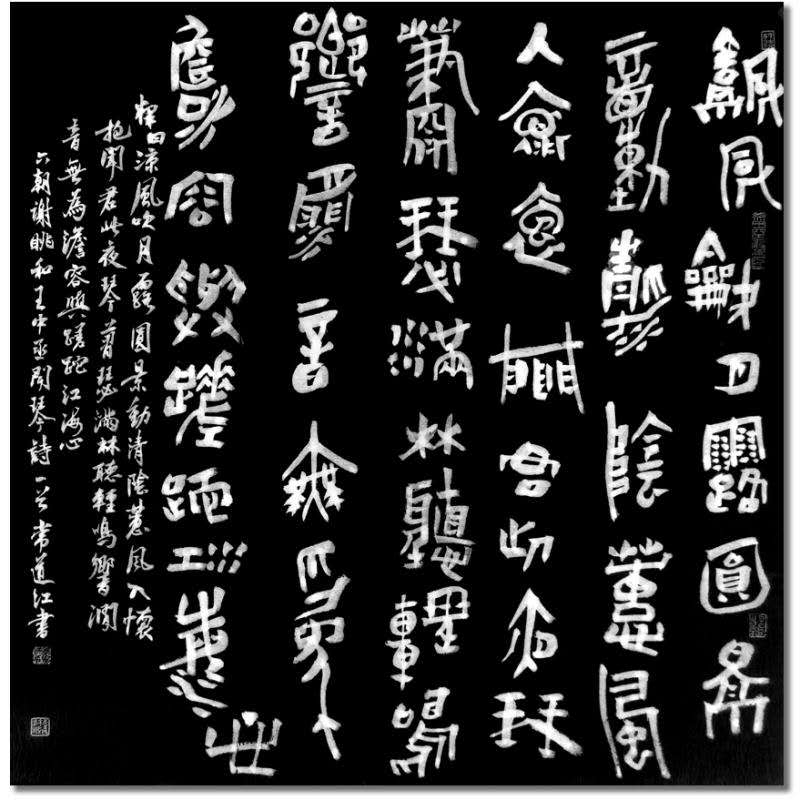 涼風吹月露圓景
動清陰蕙風
入懷抱聞君此夜琴
蕭瑟滿林聽輕鳴
響澗音無為
澹容與蹉跎江海心
釋曰涼風吹月露圓景動清陰蕙風入懷
抱聞君此夜琴蕭瑟滿林聽輕鳴響澗
音無為澹容與蹉跎江海心
六朝謝眺和王中丞聞琴詩一首常道江書